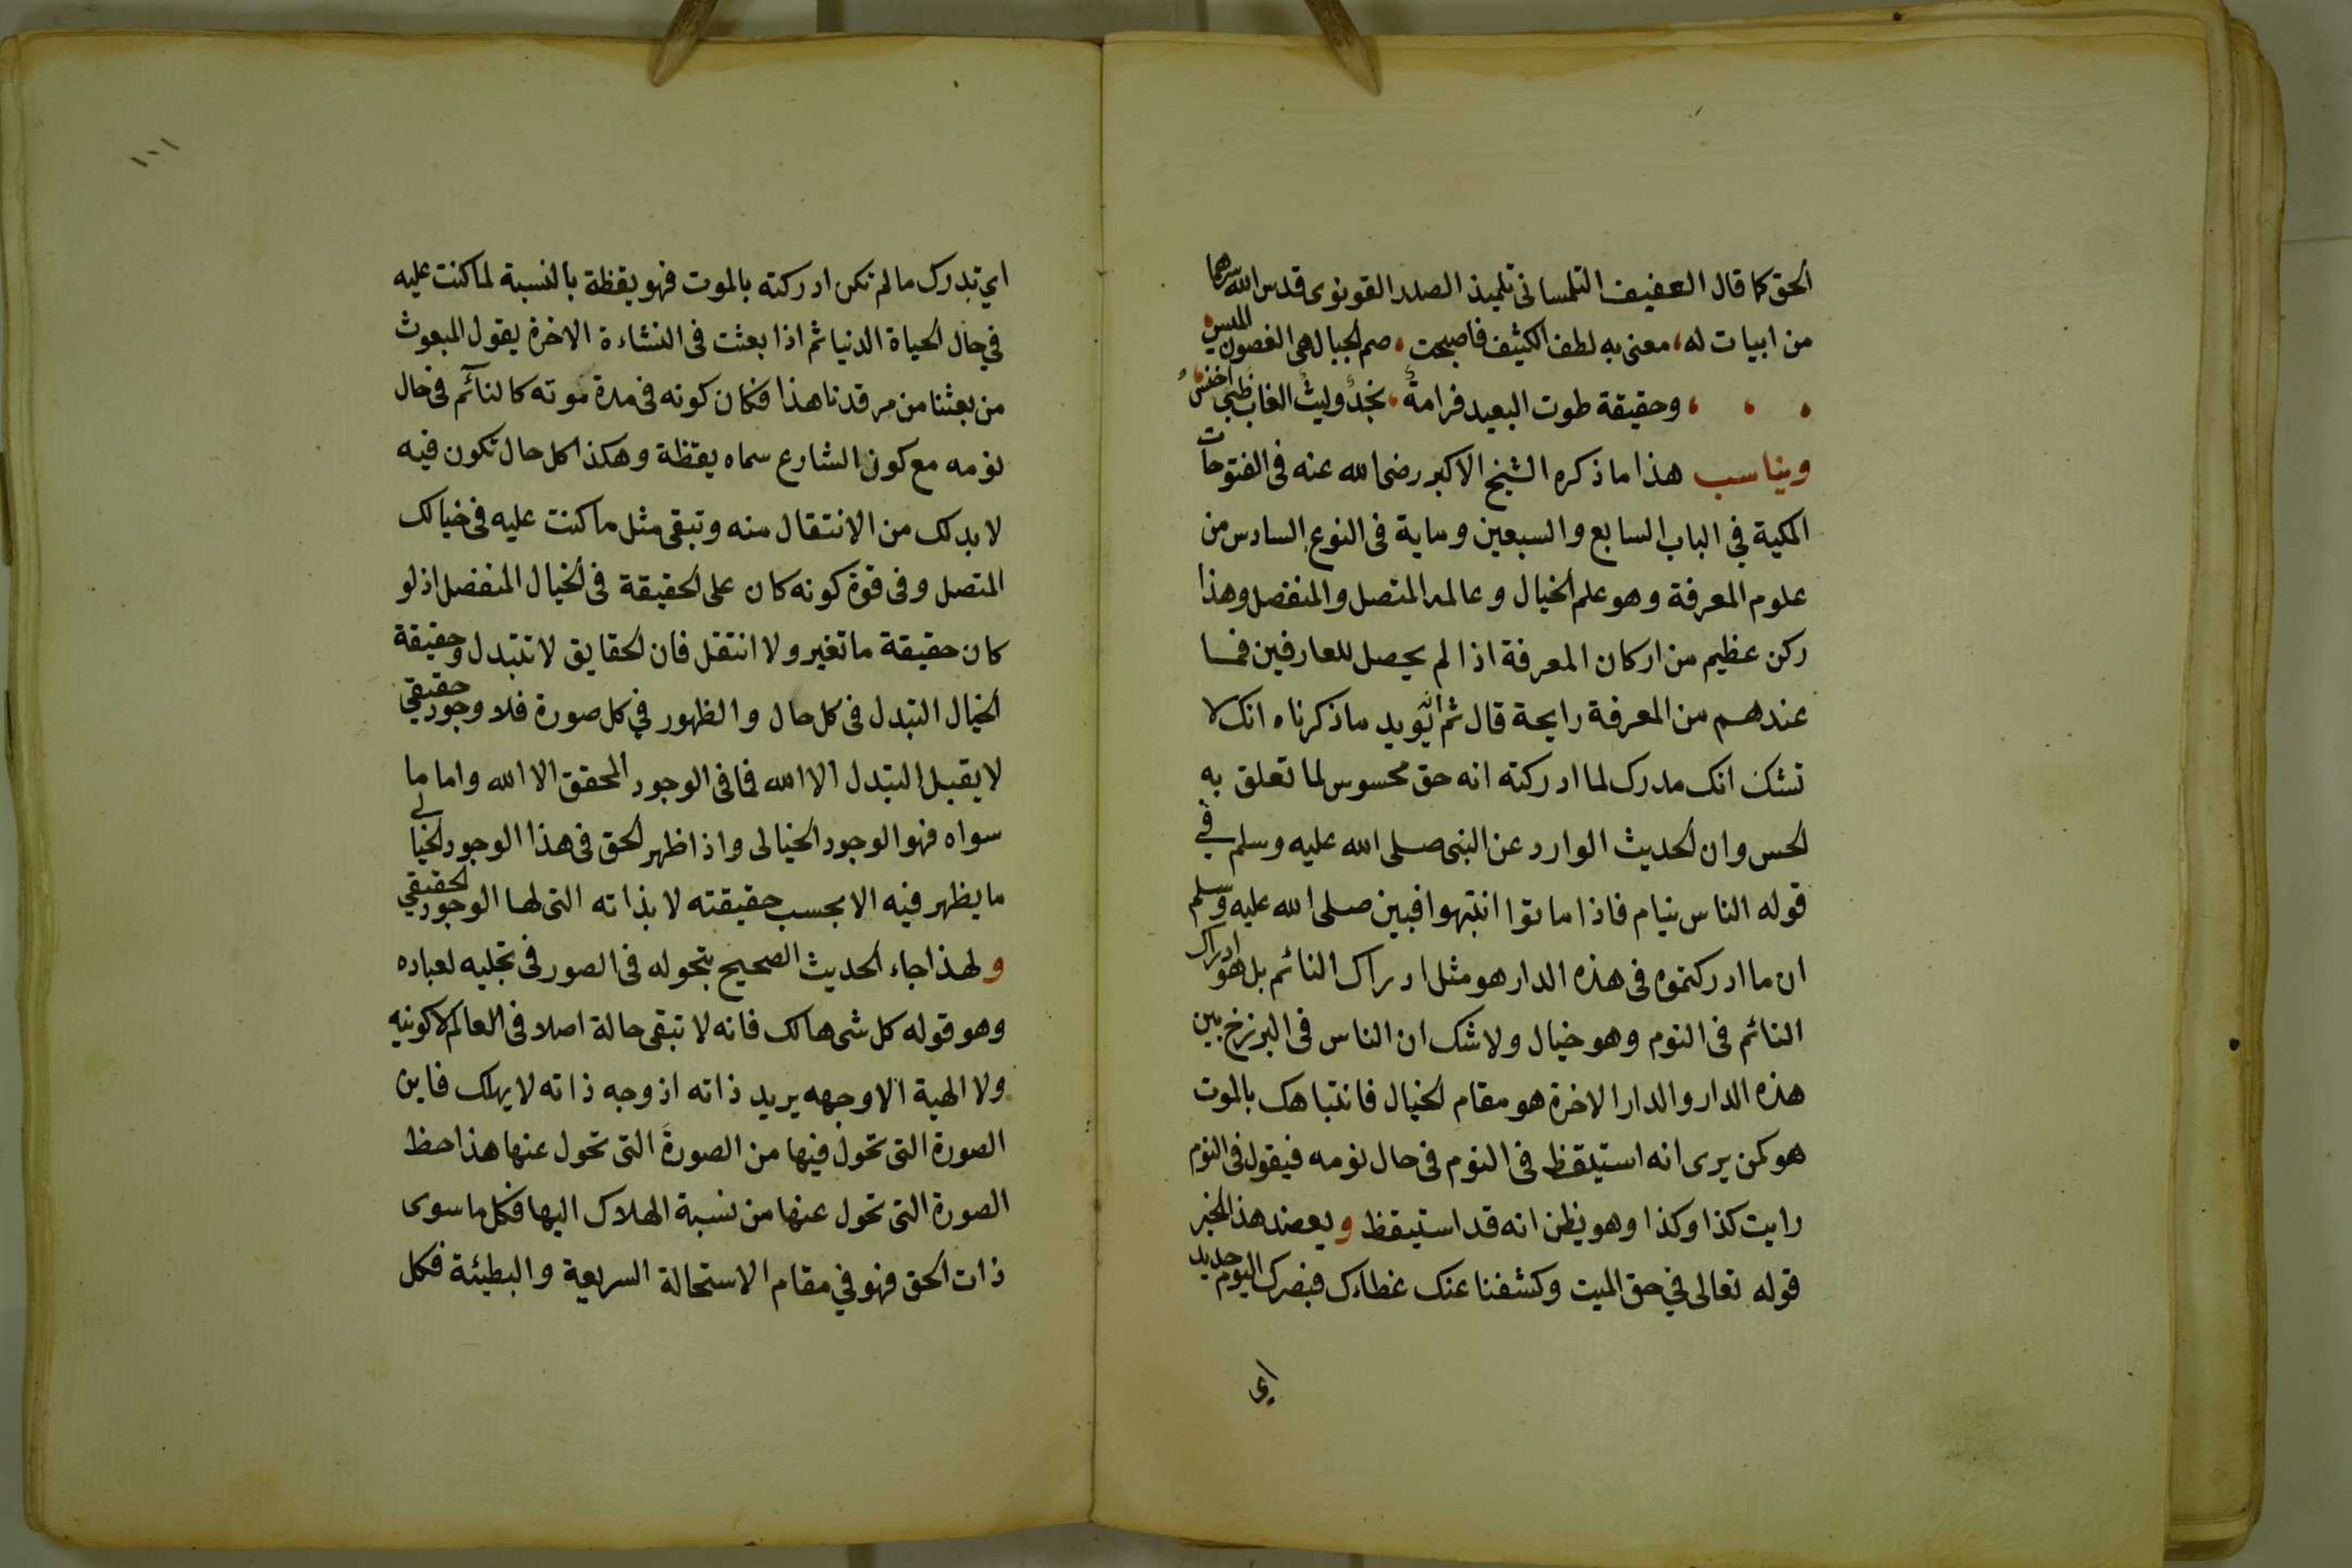 الحق كما قال العفيف التلمسانى تلميذ الصدر القونوى قدس الله سرهما
من ابيات له، معنى به لطف الكثيف فاصبحت، صم الجبال هى الغصون الميس،
وحقيقة طوت البعيد فرامة، نجد وليث الغاب ظبى اخنس
ويناسب هذا ما ذكره الشيخ الاكبر رضى الله عنه فى الفتوحات
المكية في الباب السابع والسبعين وماية فى النوع السادس من
علوم المعرفة وهو علم الخيال وعالمه المتصل والمنفصل وهذا
ركن عظيم من اركان المعرفة اذا لم يحصل للعارفين فما
عندهم من المعرفة رايحة قال ثم انه يؤيد ما ذكرناه انك لا
تشك انك مدرك لما ادركته انه حق محسوس لما تعلق به
الحس وان الحديث الوارد عن النبى صلى الله عليه وسلم في
قوله الناس نيام فاذا ماتوا انتبهوا فبين صلى الله عليه وسلم
ان ما ادركتموه فى هذه الدار هو مثل ادراك النائم بل هو ادراك
النائم فى النوم وهو خيال ولا شك ان الناس فى البرزخ بين
هذه الدار والدار الاخرة هو مقام الخيال فانتباهك بالموت
هو كمن يرى انه استيقظ فى النوم فى حال نومه فيقول فى النوم
رايت كذا وكذا وهو يظن انه قد استيقظ ويعضد هذا الخبر
قوله تعالى في حق الميت وكشفنا عنك غطاءك فبصرك اليوم حديد
اى
١٠١
اي تدرك ما لم تكن ادركته بالموت فهو يقظة بالنسبة لما كنت عليه
في حال الحياة الدنيا ثم اذا بعثت فى النشاءة الاخرة يقول المبعوث
من بعثنا من مرقدنا هذا فكان كونه فى مدة موته كالنآئم فى حال
نومه مع كون الشارع سماه يقظة وهكذا كل حال تكون فيه
لا بد لك من الانتقال منه وتبقى مثل ما كنت عليه فى خيالك
المتصل وفى قوة كونه كان على الحقيقة فى الخيال المنفصل اذ لو
كان حقيقة ما تغير ولا انتقل فان الحقايق لا تتبدل وحقيقة
الخيال التبدل فى كل حال والظهور في كل صورة فلا وجود حقيقي
لا يقبل التبدل الا الله فما فى الوجود المحقق الا الله واما ما
سواه فهو الوجود الخيالى واذا ظهر الحق فى هذا الوجود الخيالي
ما يظهر فيه الا بحسب حقيقته لا بذاته التى لها الوجود الحقيقي
ولهذا جاء الحديث الصحيح بتحوله فى الصور فى تجليه لعباده
وهو قوله كل شى هالك فانه لا تبقى حالة اصلا فى العالم لا كونيه
ولا الهية الا وجهه يريد ذاته اذ وجه ذاته لا يهلك فاين
الصورة التى تحول فيها من الصورة التى تحول عنها هذا حظ
الصورة التى تحول عنها من نسبة الهلاك اليها فكل ما سوى
ذات الحق فهو في مقام الاستحالة السريعة والبطيئة فكل